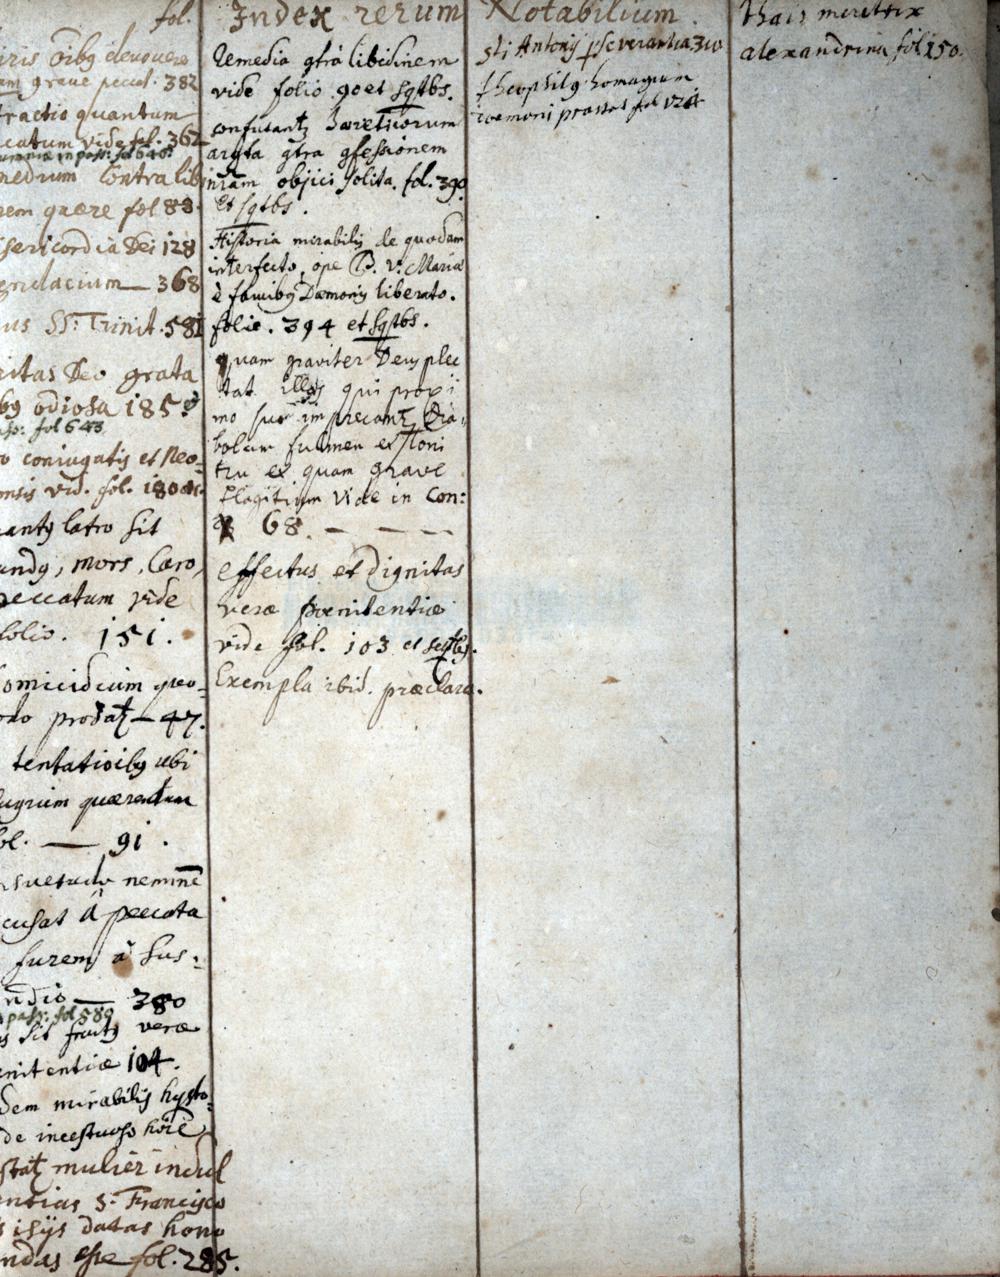 fol.
oibq devovere
grave peccat. 382
tractio quantum
catum vide fol. 362
pass: fol 646.
medium Contra lib
rem quære fol 88.
sericordia Dei 128
endacium — 368
us SS: Trinit. 581
ritas Deo grata
odiosa 185.
pass: fol 643
coniugatis et Neo-
vid. fol. 180
antq latro sit
undq, mors, Caro,
peccatum vide
folio. 151.
omicidium quo-
do — 47.
tentatioibq ubi
fugium
ol. — 91.
suetudo neminē
cusat à peccata
furem à sus-
ndio — 380
pass: fol 589
sit fructq veræ
nitentiæ 104.
dem mirabilis hysto-
de incestuoso hoīe
mulier indul
entias S. Francisco
datas hono
ndas esse fol. 285.
Index rerum Notabilium.
Remedia gtrà libidinem
vide folio 90 et sqtbs.
confutantq hæreticorum
argta gtra gfessionem
nram objici solita. fol. 390
et sqtbs.
Historia mirabilis de quodam
interfecto, ope B. V. Mariæ
è faucibq Dæmonis liberato.
folio. 394 et sqtbs.
quam graviter Deus plec
tat illos qui proxi
mo suo imprecantq Dia-
bolum fulmen et toni
tru et quam grave
flagitium Vide in Con:
68. — — —
effectus et dignitas
veræ pœnitentiæ
vide fol. 103 et seqtbs.
Exempla ibid. præclara.
sti Antonij pseverantia 310
theophilq homagium
dæmoni præstat fol
thais meretrix
alexandrina fol 150.